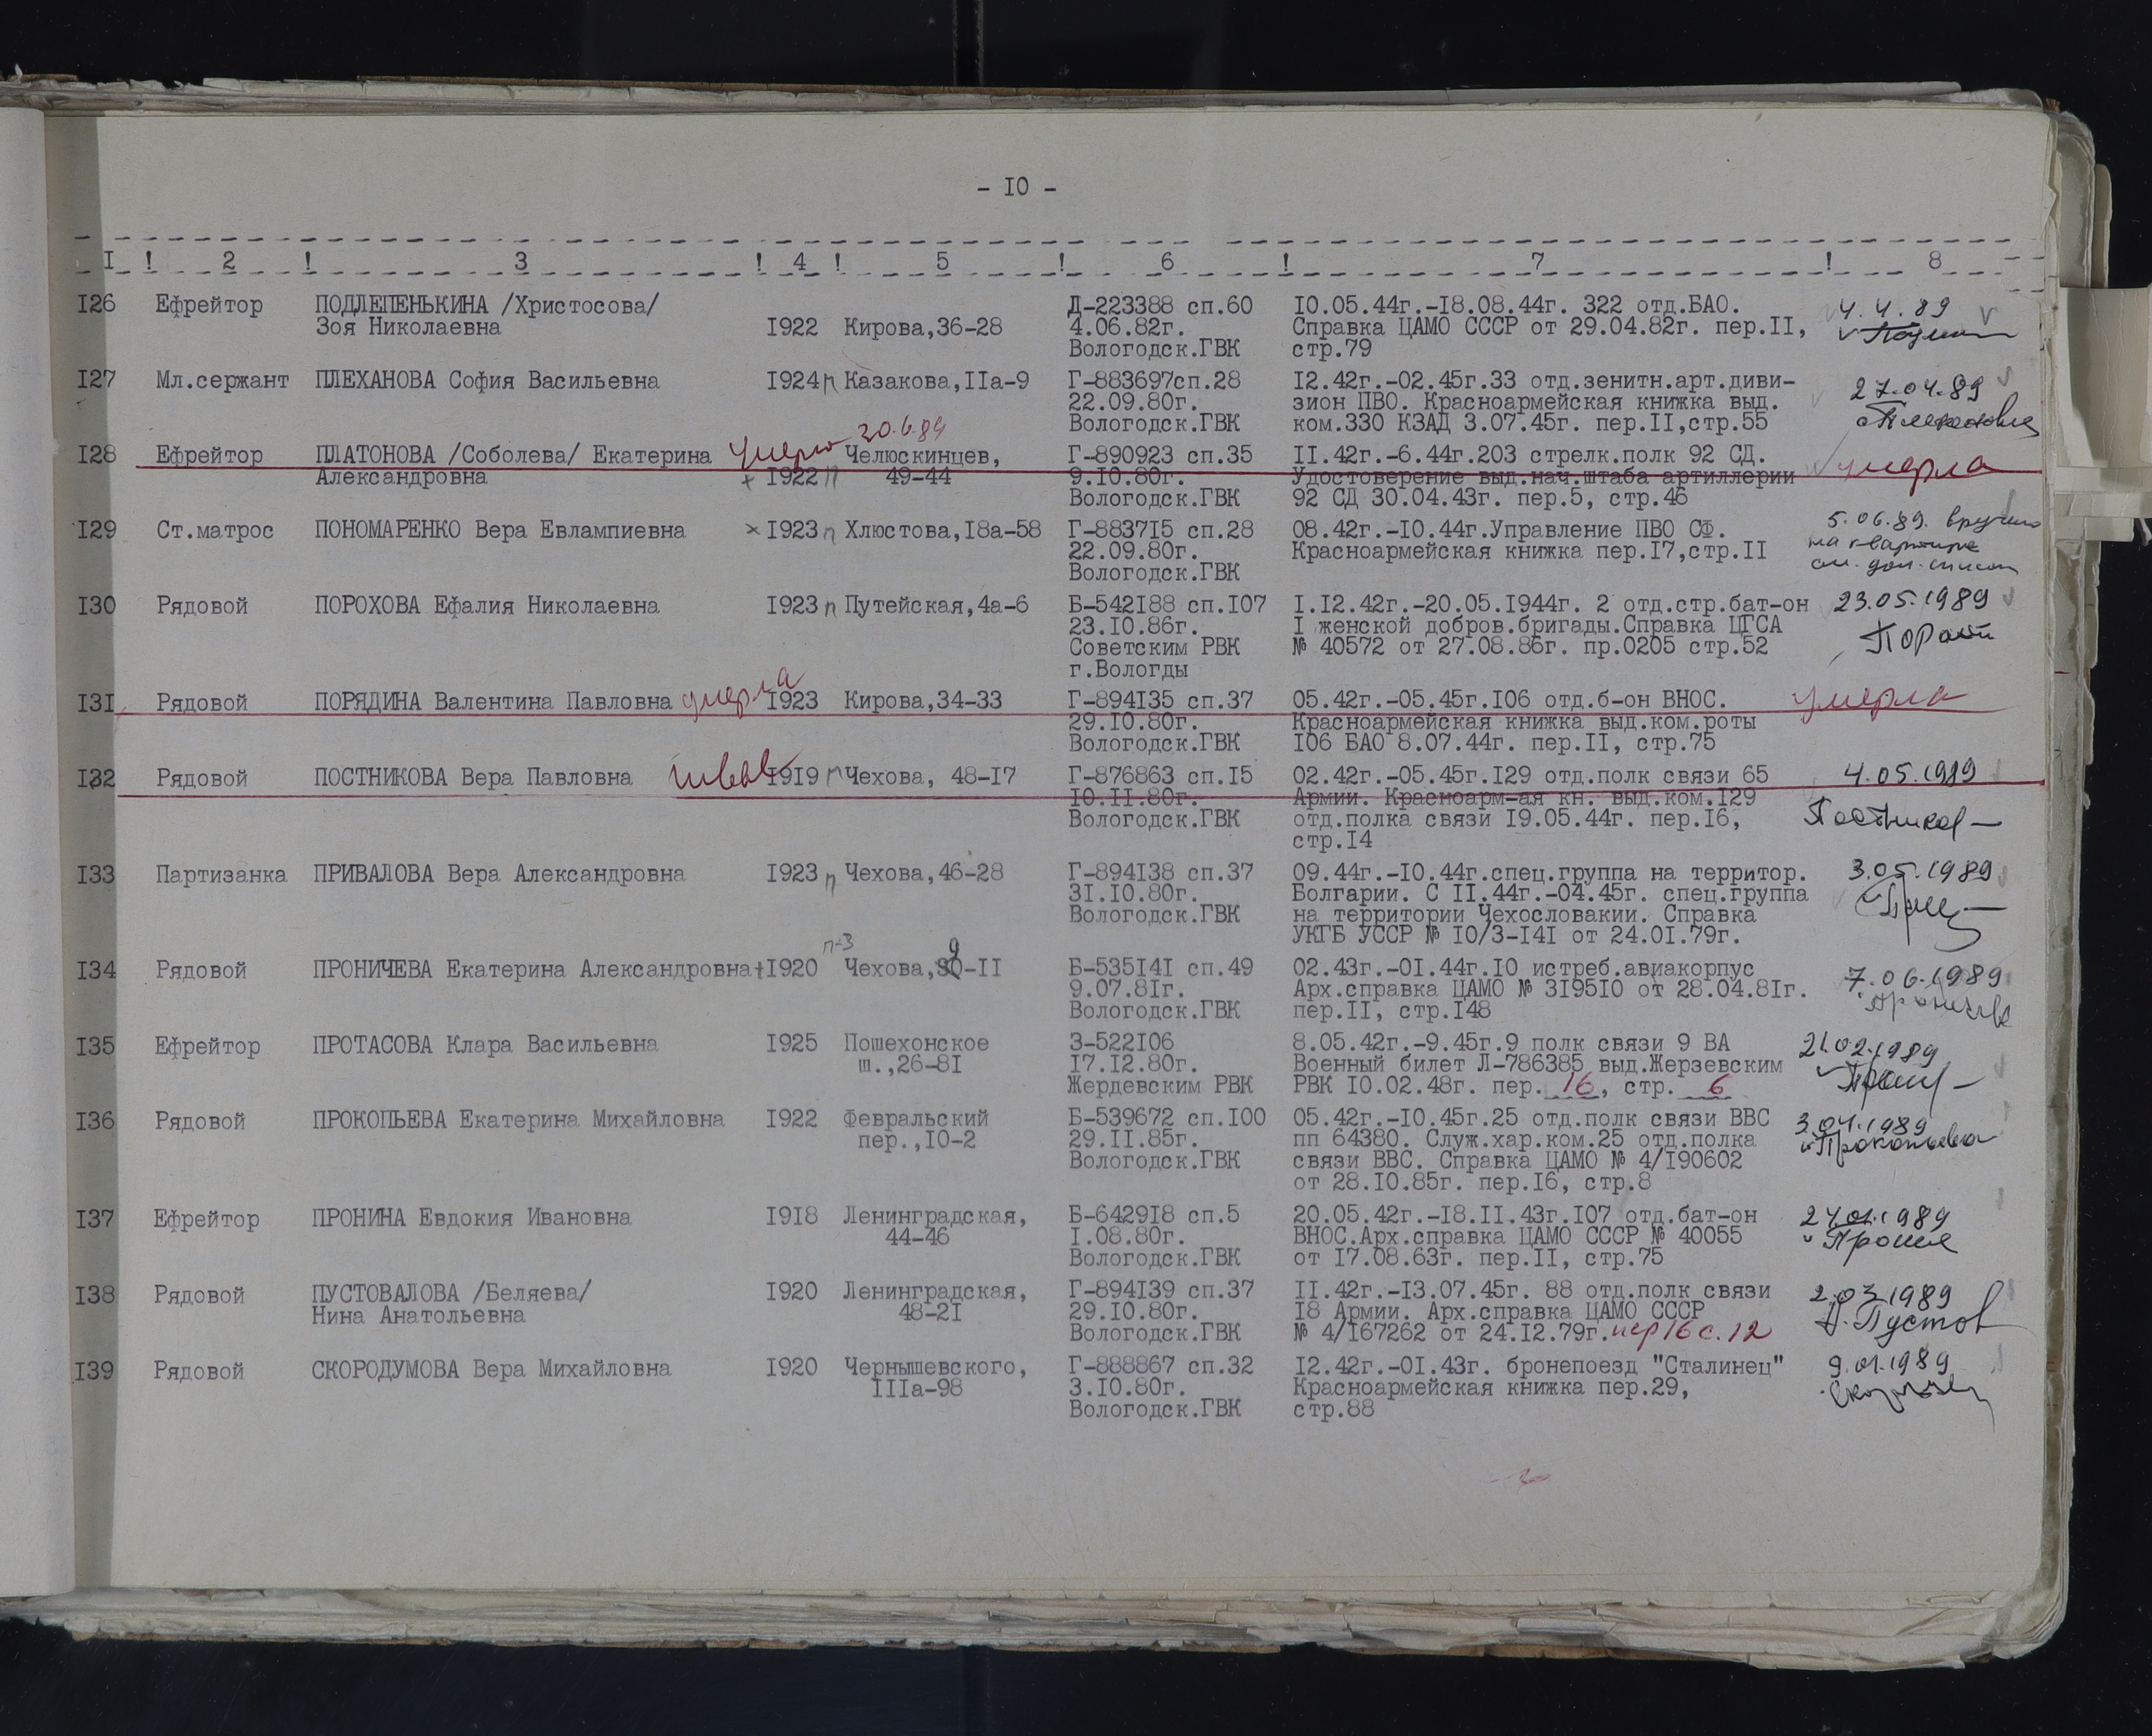 - I0 -
I ! 2 ! 3 ! 4 ! 5 ! 6 ! 7 ! 8
I26 Ефрейтор ПОДЛЕПЕНЬКИНА /Христосова/ Д-223388 сп.60 I0.05.44г.-I8.08.44г. 322 отд.БАО. 4.4.89
Зоя Николаевна I922 Кирова,36-28 4.06.82г. Справка ЦАМО СССР от 29.04.82г. пер.II,
Вологодск.ГВК стр.79
I27 Мл.сержант ПЛЕХАНОВА София Васильевна I924 п Казакова,IIа-9 Г-883697сп.28 I2.42г.-02.45г.33 отд.зенитн.арт.диви- 27.04.89
22.09.80г. зион ПВО. Красноармейская книжка выд.
Вологодск.ГВК ком.330 КЗАД 3.07.45г. пер.II,стр.55
30.6.89
I28 Ефрейтор ПЛАТОНОВА /Соболева/ Екатерина умерла Челюскинцев, Г-890923 сп.35 II.42г.-6.44г.203 стрелк.полк 92 СД. умерла
Александровна + I922 п 49-44 9.I0.80г. Удостоверение выд.нач.штаба артиллерии
Вологодск.ГВК 92 СД 30.04.43г. пер.5, стр.46
I29 Ст.матрос ПОНОМАРЕНКО Вера Евлампиевна × I923 п Хлюстова,I8а-58 Г-8837I5 сп.28 08.42г.-I0.44г.Управление ПВО СФ. 5.06.89. вручено
22.09.80г. Красноармейская книжка пер.I7,стр.II на квартире
Вологодск.ГВК см. доп. список
I30 Рядовой ПОРОХОВА Ефалия Николаевна I923 п Путейская,4а-6 Б-542I88 сп.I07 I.I2.42г.-20.05.I944г. 2 отд.стр.бат-он 23.05.1989
23.I0.86г. I женской добров.бригады.Справка ЦГСА
Советским РВК № 40572 от 27.08.86г. пр.0205 стр.52
г.Вологды
I3I Рядовой ПОРЯДИНА Валентина Павловна умерла I923 Кирова,34-33 Г-894I35 сп.37 05.42г.-05.45г.I06 отд.б-он ВНОС. умерла
29.I0.80г. Красноармейская книжка выд.ком.роты
Вологодск.ГВК I06 БАО 8.07.44г. пер.II, стр.75
I32 Рядовой ПОСТНИКОВА Вера Павловна I9I9 п Чехова, 48-I7 Г-876863 сп.I5 02.42г.-05.45г.I29 отд.полк связи 65 4.05.1989
I0.II.80г. Армии. Красноарм-ая кн. выд.ком.I29
Вологодск.ГВК отд.полка связи I9.05.44г. пер.I6,
стр.I4
I33 Партизанка ПРИВАЛОВА Вера Александровна I923 п Чехова,46-28 Г-894I38 сп.37 09.44г.-I0.44г.спец.группа на территор. 3.05.1989
3I.I0.80г. Болгарии. С II.44г.-04.45г. спец.группа
Вологодск.ГВК на территории Чехословакии. Справка
УКГБ УССР № I0/3-I4I от 24.0I.79г.
п-3 9
I34 Рядовой ПРОНИЧЕВА Екатерина Александровна + I920 Чехова,30-II Б-535I4I сп.49 02.43г.-0I.44г.I0 истреб.авиакорпус 7.06.1989
9.07.8Iг. Арх.справка ЦАМО № 3I95I0 от 28.04.8Iг.
Вологодск.ГВК пер.II, стр.I48
I35 Ефрейтор ПРОТАСОВА Клара Васильевна I925 Пошехонское З-522I06 8.05.42г.-9.45г.9 полк связи 9 ВА 21.02.1989
ш.,26-8I I7.I2.80г. Военный билет Л-786385 выд.Жерзевским
Жердевским РВК РВК I0.02.48г. пер. 16, стр. 6
I36 Рядовой ПРОКОПЬЕВА Екатерина Михайловна I922 Февральский Б-539672 сп.I00 05.42г.-I0.45г.25 отд.полк связи ВВС 3.04.1989
пер.,I0-2 29.II.85г. пп 64380. Служ.хар.ком.25 отд.полка Прокопьева
Вологодск.ГВК связи ВВС. Справка ЦАМО № 4/I90602
от 28.I0.85г. пер.I6, стр.8
I37 Ефрейтор ПРОНИНА Евдокия Ивановна I9I8 Ленинградская, Б-6429I8 сп.5 20.05.42г.-I8.II.43г.I07 отд.бат-он 24.01.1989
44-46 I.08.80г. ВНОС.Арх.справка ЦАМО СССР № 40055
Вологодск.ГВК от I7.08.63г. пер.II, стр.75
I38 Рядовой ПУСТОВАЛОВА /Беляева/ I920 Ленинградская, Г-894I39 сп.37 II.42г.-I3.07.45г. 88 отд.полк связи 2.03.1989
Нина Анатольевна 48-2I 29.I0.80г. I8 Армии. Арх.справка ЦАМО СССР
Вологодск.ГВК № 4/I67262 от 24.I2.79г. пер 16 с. 12
I39 Рядовой СКОРОДУМОВА Вера Михайловна I920 Чернышевского, Г-888867 сп.32 I2.42г.-0I.43г. бронепоезд "Сталинец" 9.01.1989
IIIа-98 3.I0.80г. Красноармейская книжка пер.29,
Вологодск.ГВК стр.88